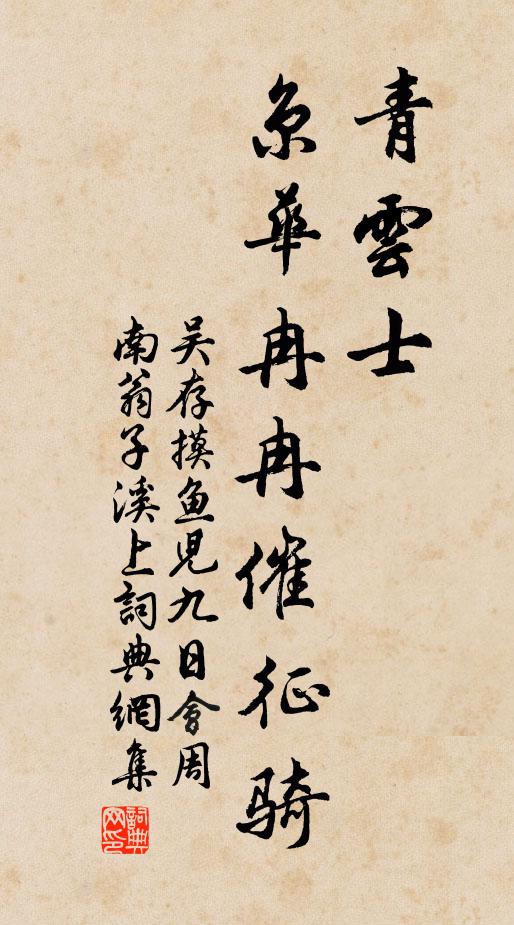 青雲士
京華冉冉催征騎
吴存摸鱼児九日會周
南翁子溪上詞典網集
詞典網印